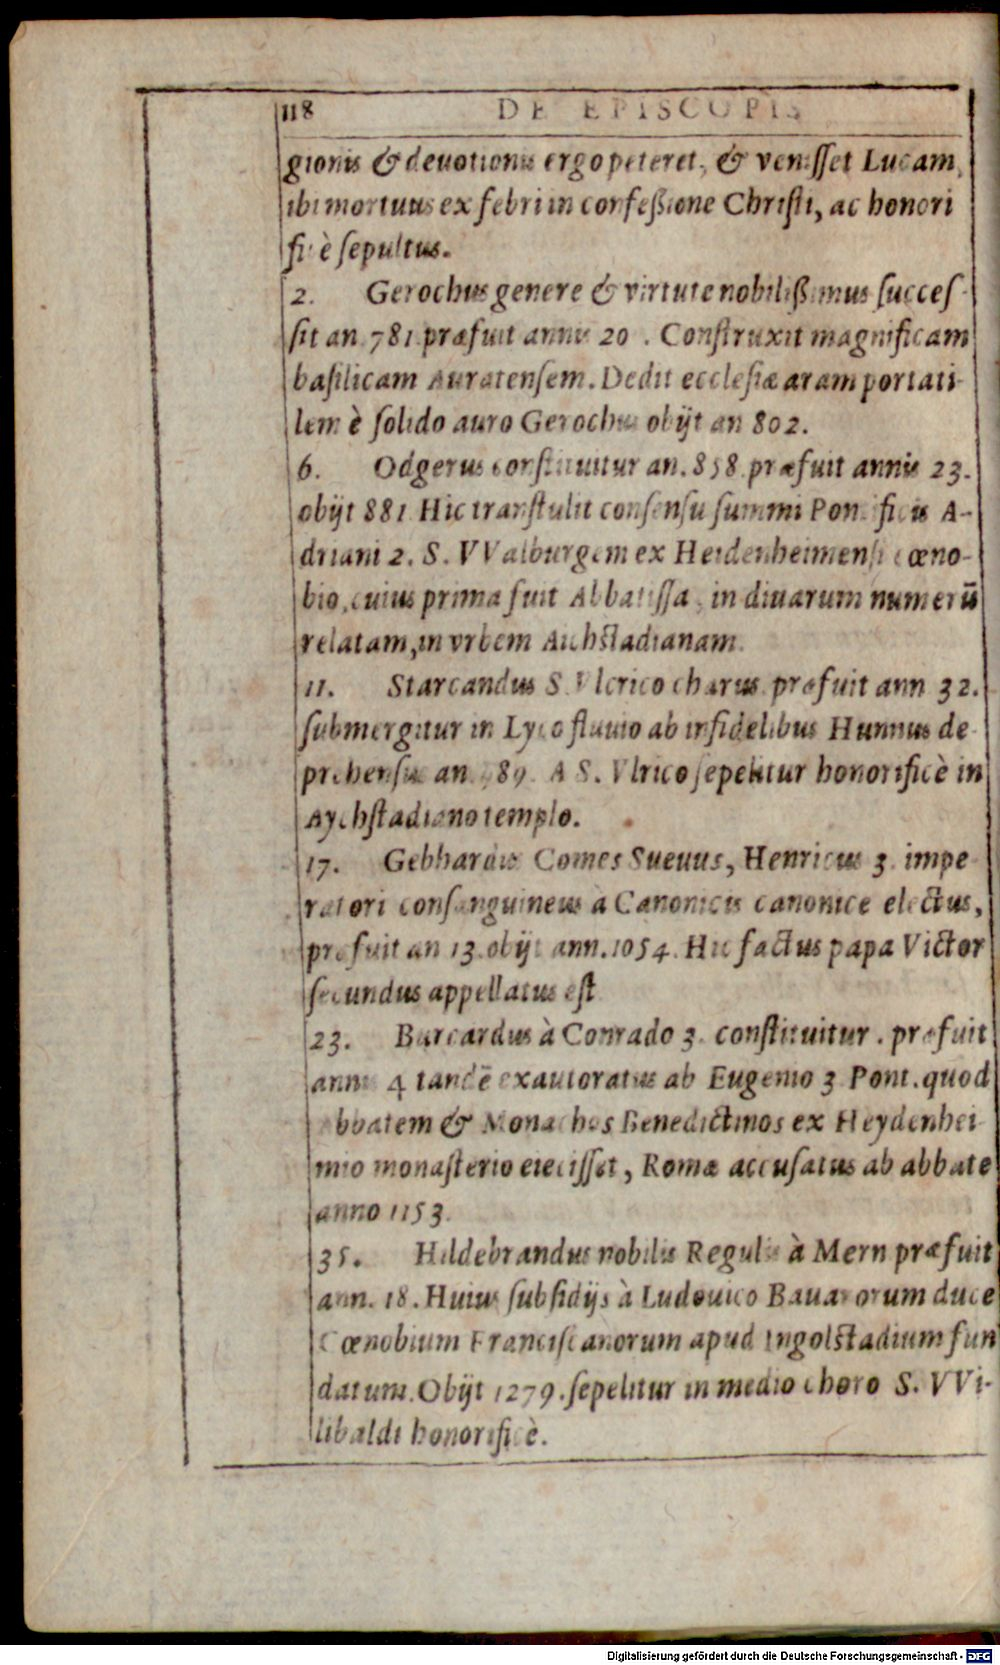 118 DE EPISCOPIS
gionis & deuotionis ergo peteret, & venisset Lucam,
ibi mortuus ex febri in confeßione Christi, ac honori
ficè sepultus.
2. Gerochus genere & virtute nobilißimus succes-
sit an. 781. præfuit annis 20. Construxit magnificam
basilicam Auratensem. Dedit ecclesiæ aram portati-
lem è solido auro Gerochus obijt an 802.
6. Odgerus constituitur an. 858. præfuit annis 23.
obijt 881. Hic transtulit consensu summi Pontificis A-
driani 2. S. VValburgem ex Heidenheimensi cœno-
bio, cuius prima fuit Abbatissa, in diuarum numerū
relatam, in vrbem Aichstadianam.
11. Starcandus S. Vlcrico charus. præfuit ann 32.
submergitur in Lyco fluuio ab infidelibus Hunnis de-
prehensus an. 989. A S. Vlrico sepelitur honorificè in
Aychstadiano templo.
17. Gebhardus Comes Sueuus, Henricus 3. impe
ratori consanguineus à Canonicis canonice electus,
præfuit an 13. obijt ann. 1054. Hic factus papa Victor
secundus appellatus est
23. Burcardus à Conrado 3. constituitur. præfuit
annis 4 tandē exautoratus ab Eugenio 3 Pont. quod
Abbatem & Monachos Benedictinos ex Heydenhei
mio monasterio eiecisset, Romæ accusatus ab abbate
anno 1153.
35. Hildebrandus nobilis Regulis à Mern præfuit
ann. 18. Huius subsidijs à Ludouico Bauarorum duce
Cœnobium Franciscanorum apud Ingolstadium fun
datum. Obijt 1279. sepelitur in medio choro S. VVi-
libaldi honorificè.
Digitalisierung gefördert durch die Deutsche Forschungsgemeinschaft - DFG